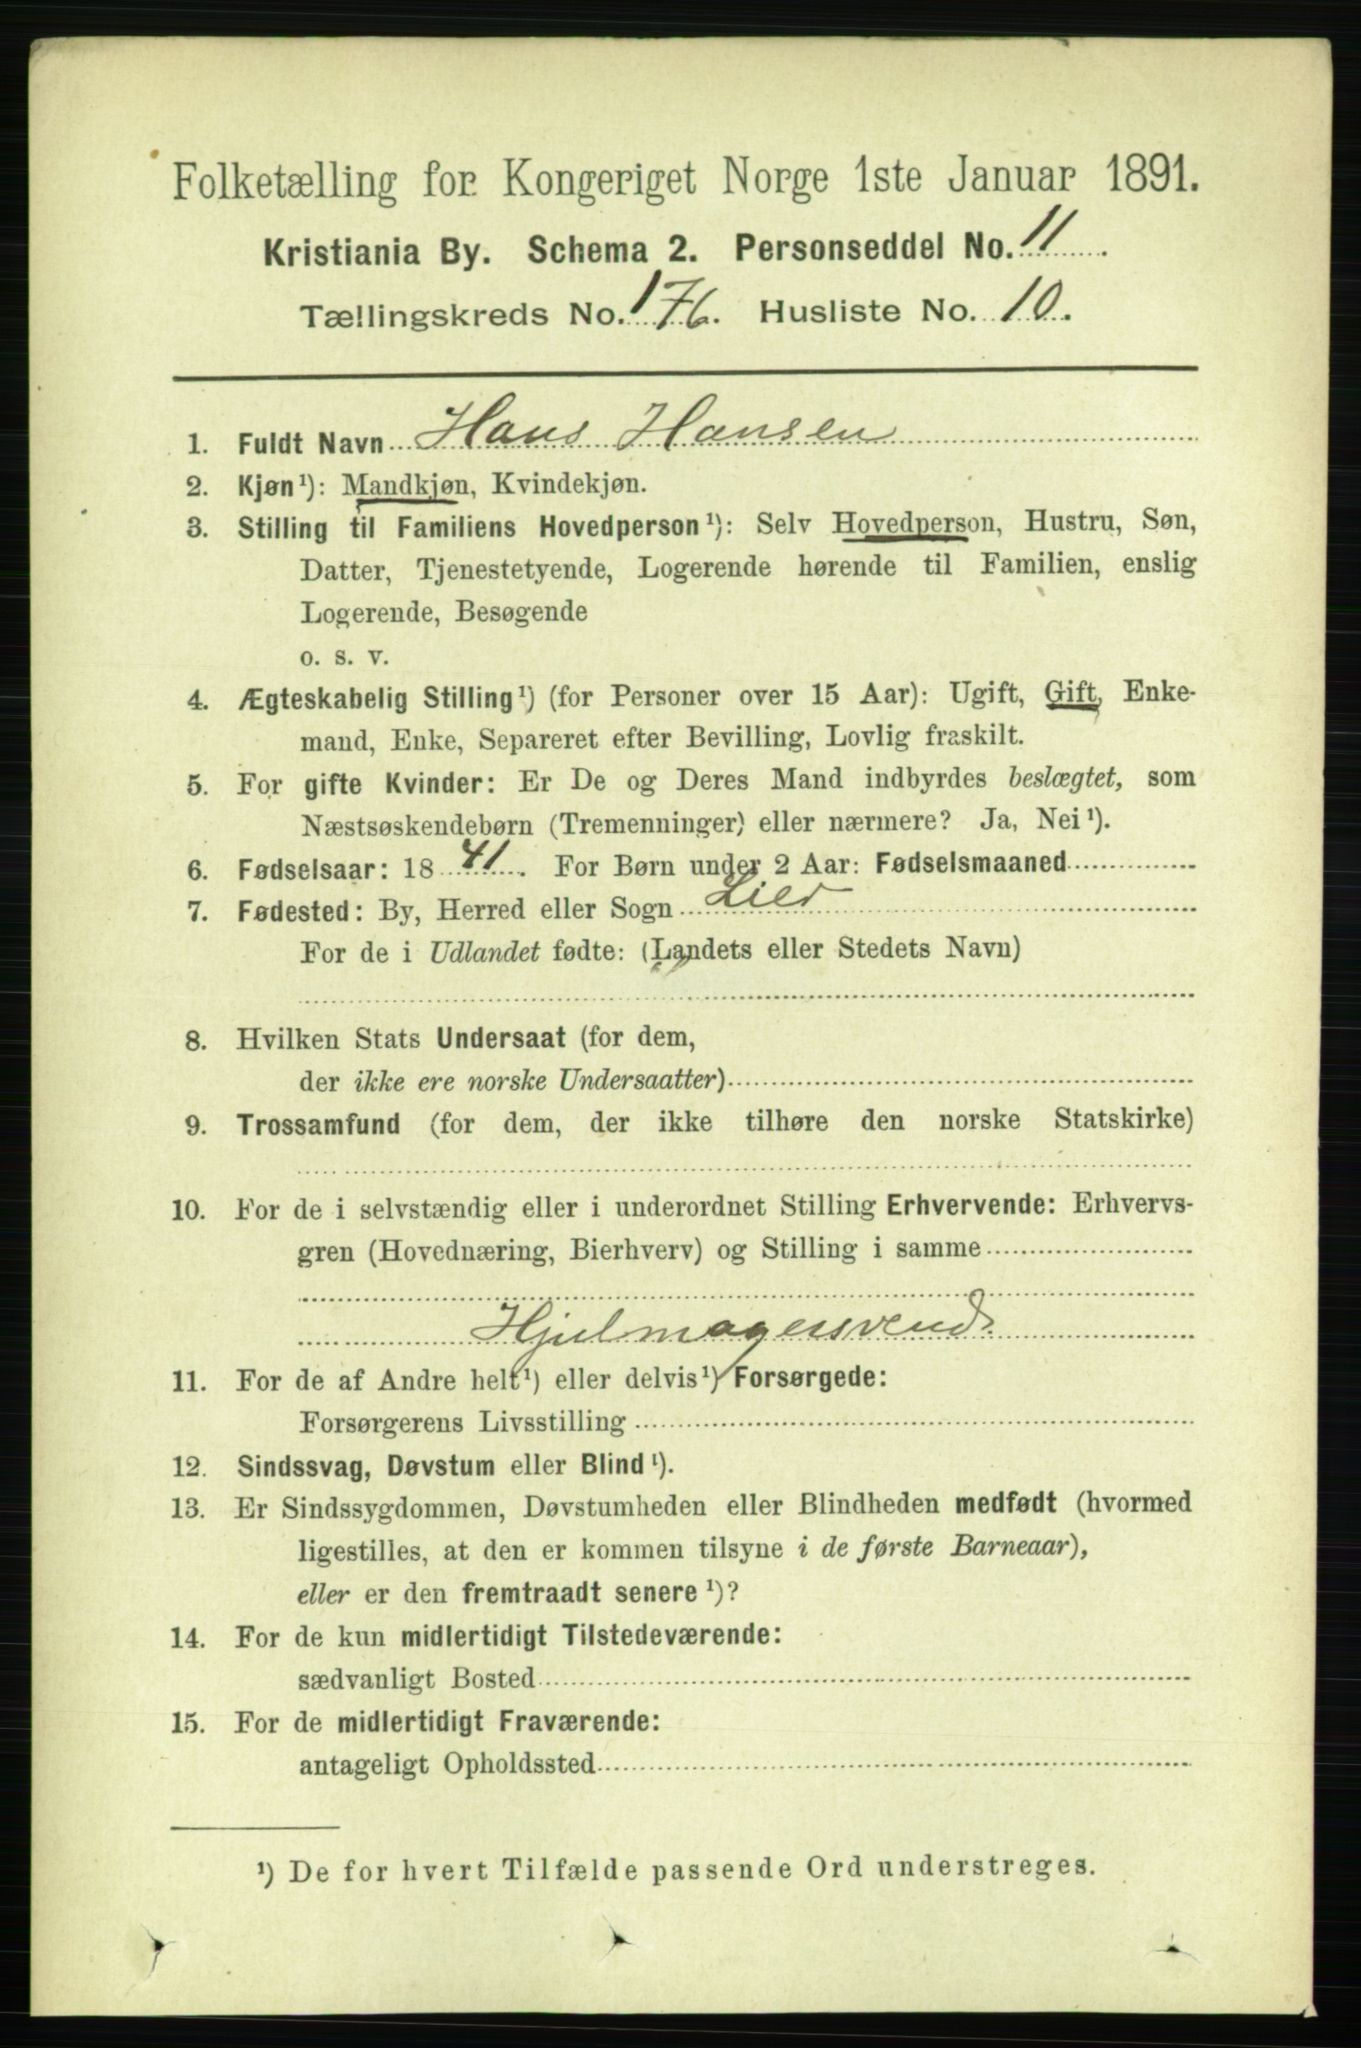 Folketælling for Kongeriget Norge 1ste Januar 1891.
Kristiania By. Schema 2. Personseddel No. 11
Tællingskreds No. 176. Husliste No. 10.
1. Fuldt Navn Hans Hansen
2. Kjøn¹): Mandkjøn, Kvindekjøn.
3. Stilling til Familiens Hovedperson¹): Selv Hovedperson, Hustru, Søn,
Datter, Tjenestetyende, Logerende hørende til Familien, enslig
Logerende, Besøgende
o. s. v.
4. Ægteskabelig Stilling¹) (for Personer over 15 Aar): Ugift, Gift, Enke-
mand, Enke, Separeret efter Bevilling, Lovlig fraskilt.
5. For gifte Kvinder: Er De og Deres Mand indbyrdes beslægtet, som
Næstsøskendebørn (Tremenninger) eller nærmere? Ja, Nei¹).
6. Fødselsaar: 1841. For Børn under 2 Aar: Fødselsmaaned
7. Fødested: By, Herred eller Sogn Lier
For de i Udlandet fødte: (Landets eller Stedets Navn)
8. Hvilken Stats Undersaat (for dem,
der ikke ere norske Undersaatter)
9. Trossamfund (for dem, der ikke tilhøre den norske Statskirke)
10. For de i selvstændig eller i underordnet Stilling Erhvervende: Erhvervs-
gren (Hovednæring, Bierhverv) og Stilling i samme
Hjulmagersvend
11. For de af Andre helt¹) eller delvis¹) Forsørgede:
Forsørgerens Livsstilling
12. Sindssvag, Døvstum eller Blind¹).
13. Er Sindssygdommen, Døvstumheden eller Blindheden medfødt (hvormed
ligestilles, at den er kommen tilsyne i de første Barneaar),
eller er den fremtraadt senere¹)?
14. For de kun midlertidigt Tilstedeværende:
sædvanligt Bosted
15. For de midlertidigt Fraværende:
antageligt Opholdssted
¹) De for hvert Tilfælde passende Ord understreges.